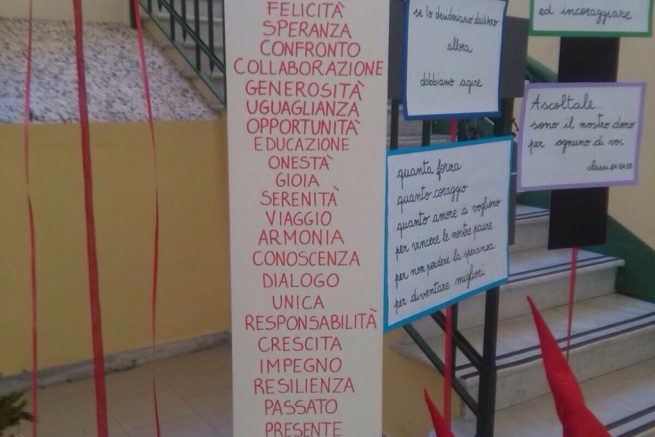 FELICITÀ
SPERANZA
CONFRONTO
COLLABORAZIONE
GENEROSITÀ
UGUAGLIANZA
OPPORTUNITÀ
EDUCAZIONE
ONESTÀ
GIOIA
SERENITÀ
VIAGGIO
ARMONIA
CONOSCENZA
DIALOGO
UNICA
RESPONSABILITÀ
CRESCITA
IMPEGNO
RESILIENZA
PASSATO
PRESENTE
se lo desideriamo davvero
allora
dobbiamo agire
quanta forza
quanto coraggio
quanto amore ci vogliono
per vincere le nostre paure
per non perdere la speranza
per diventare migliori
ed incoraggiare
Ascoltale...
sono il nostro dono
per ognuno di voi
classi